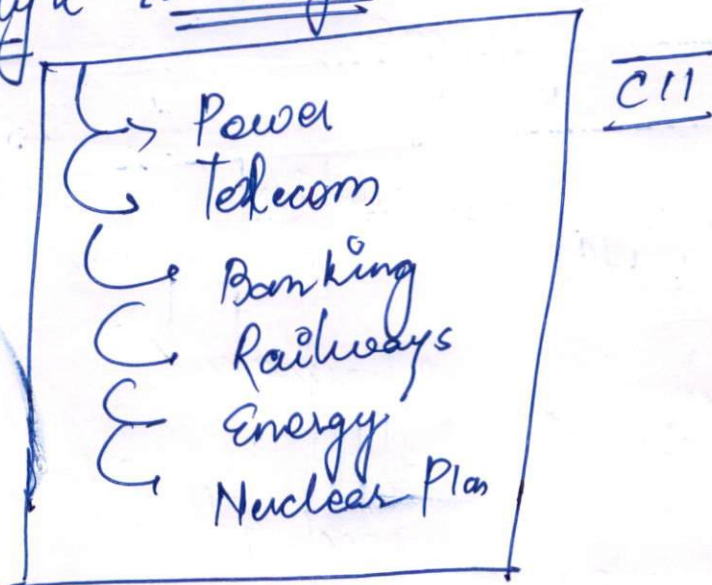 CII
Power
Telecom
Banking
Railways
Energy
Nuclear Plan